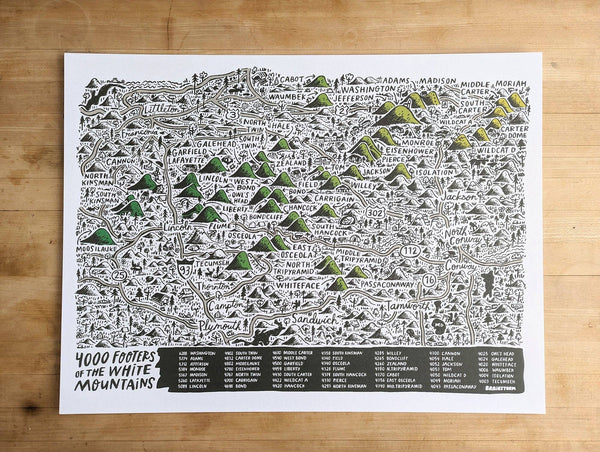 CABOT
ADAMS
MADISON
MORIAH
WASHINGTON
MIDDLE
CARTER
WAUMBEK
JEFFERSON
Littleton
SOUTH
CARTER
3
NORTH
HALE
WILDCAT A
CARTER
DOME
Franconia
SOUTH
TWIN
GALEHEAD
MONROE
WILDCAT D
GARFIELD
EISENHOWER
CANNON
LAFAYETTE
ZEALAND
PIERCE
JACKSON
ISOLATION
NORTH
KINSMAN
LINCOLN
WEST
BOND
FIELD
WILLEY
SOUTH
KINSMAN
OWL'S
HEAD
BOND
CARRIGAIN
Jackson
LIBERTY
HANCOCK
302
BONDCLIFF
Lincoln
FLUME
SOUTH
HANCOCK
North
Conway
MOOSILAUKE
OSCEOLA
EAST
OSCEOLA
MIDDLE
TRIPYRAMID
112
TECUMSEH
NORTH
TRIPYRAMID
Conway
93
25
Thornton
WHITEFACE
PASSACONAWAY
16
Campton
Tamworth
Plymouth
Sandwich
4000 FOOTERS
OF THE WHITE
MOUNTAINS
6288 WASHINGTON
5774 ADAMS
5712 JEFFERSON
5384 MONROE
5367 MADISON
5260 LAFAYETTE
5089 LINCOLN
4902 SOUTH TWIN
4832 CARTER DOME
4802 MOOSILAUKE
4780 EISENHOWER
4761 NORTH TWIN
4700 CARRIGAIN
4698 BOND
4610 MIDDLE CARTER
4540 WEST BOND
4500 GARFIELD
4459 LIBERTY
4430 SOUTH CARTER
4422 WILDCAT A
4420 HANCOCK
4358 SOUTH KINSMAN
4340 FIELD
4340 OSCEOLA
4328 FLUME
4319 SOUTH HANCOCK
4310 PIERCE
4293 NORTH KINSMAN
4285 WILLEY
4265 BONDCLIFF
4260 ZEALAND
4180 N.TRIPYRAMID
4170 CABOT
4156 EAST OSCEOLA
4140 MID.TRIPYRAMID
4100 CANNON
4054 HALE
4052 JACKSON
4051 TOM
4050 WILDCAT D
4049 MORIAH
4043 PASSACONAWAY
4025 OWL'S HEAD
4024 GALEHEAD
4020 WHITEFACE
4006 WAUMBEK
4004 ISOLATION
4003 TECUMSEH
BRAINSTORM